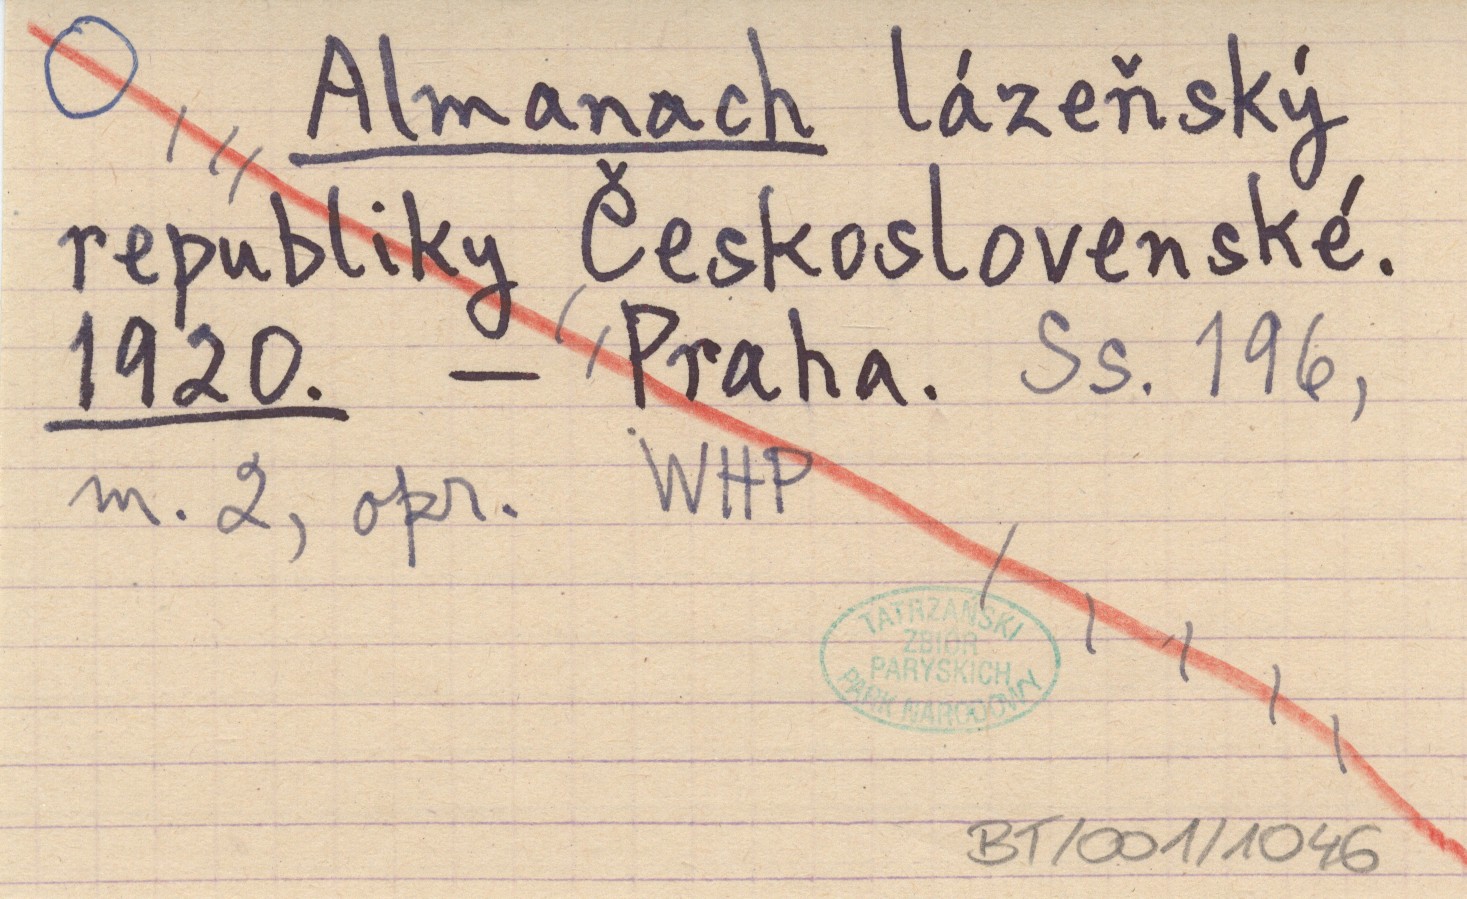 Almanach lázeňský
republiky Československé.
1920. — Praha. Ss. 196,
m. 2, opr. WHP
TATRZAŃSKI
ZBIÓR
PARYSKICH
PARK NARODOWY
BT/001/1046